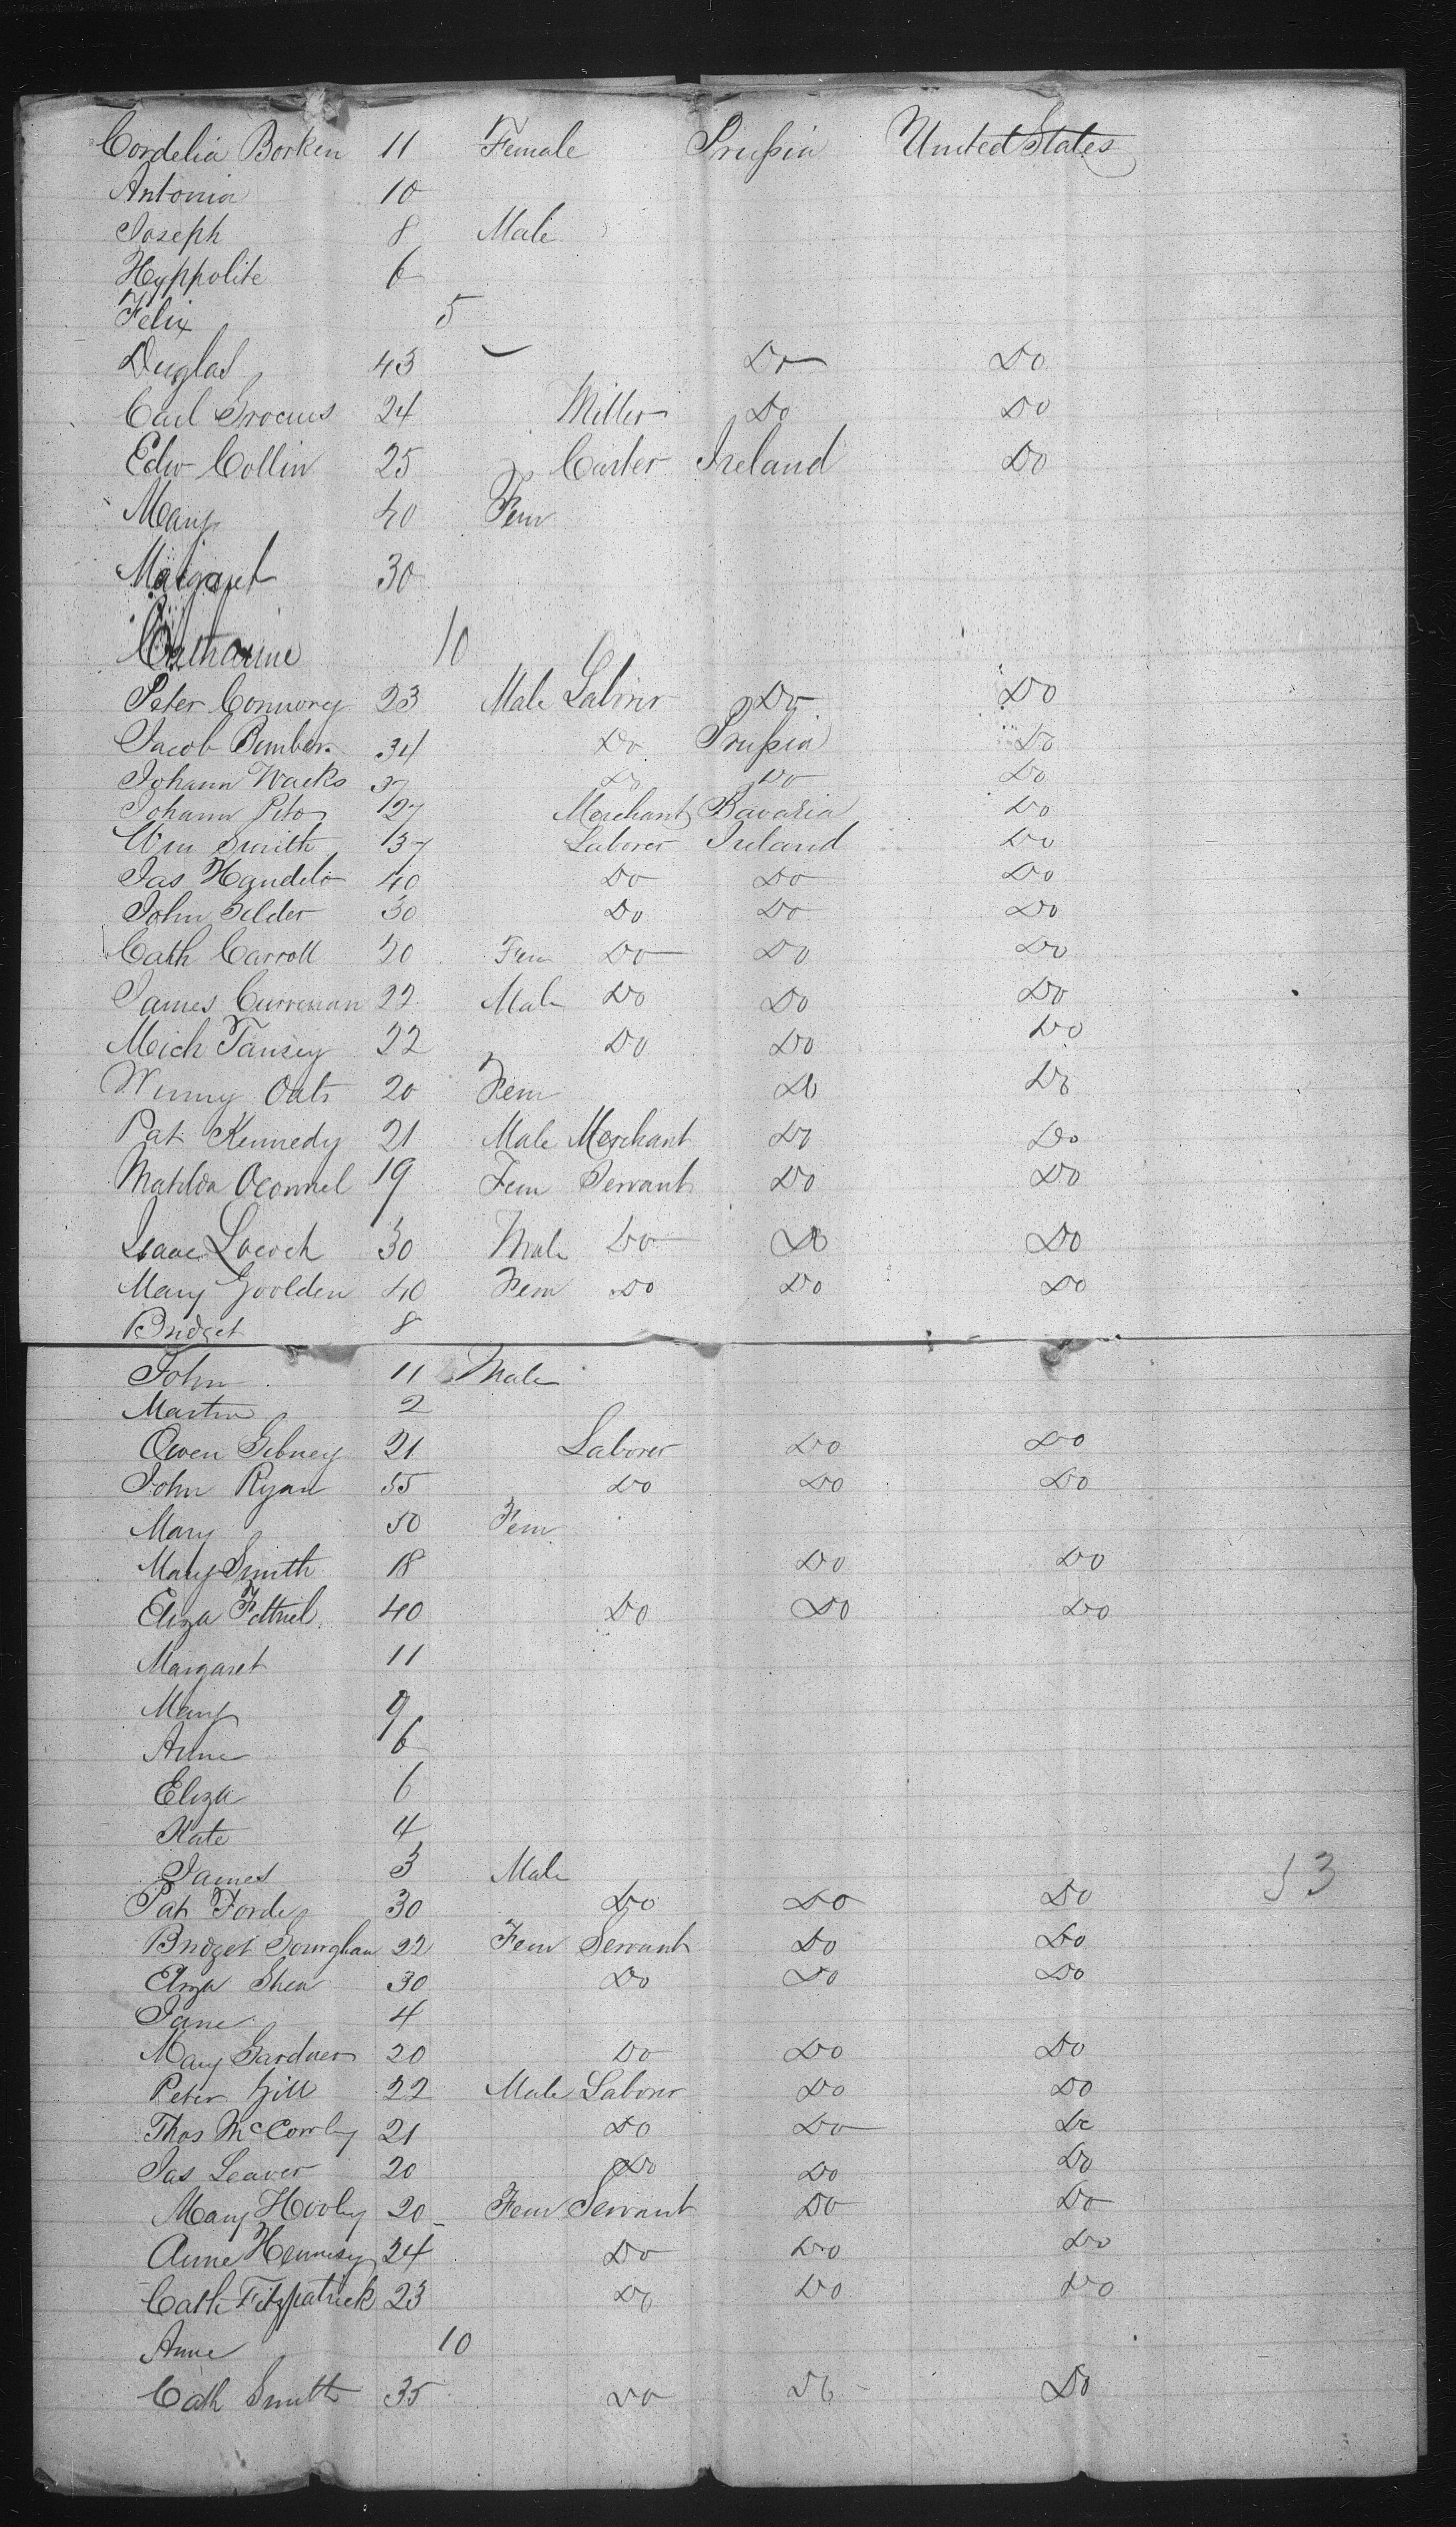 Cordelia Borken 11 Female Prussia United States
Antonia 10
Joseph 8 Male
Hyppolite 6
Felix 5
Duglas 43 Do Do
Carl Grocius 24 Miller Do Do
Edw Collin 25 Carter Ireland Do
Mary 40 Fem
Margaret 30
Catharine 10
Peter Connory 23 Male Laborer Do Do
Jacob Bember 34 Do Prussia Do
Johann Wacks 37 Do Do Do
Johann Pito 27 Merchant Bavaria Do
Wm Smith 37 Laborer Ireland Do
Jas Handelo 40 Do Do Do
John Gelder 30 Do Do Do
Cath Carroll 20 Fem Do Do Do
James Curreman 22 Male Do Do Do
Mich Tansey 22 Do Do Do
Winny Oats 20 Fem Do Do
Pat Kennedy 21 Male Merchant Do Do
Matilda Oconnel 19 Fem Servant Do Do
Isaac Locock 30 Male Do Do Do
Mary Goolden 40 Fem Do Do Do
Bridget 8
John 11 Male
Martin 2
Owen Gibney 21 Laborer Do Do
John Ryan 55 Do Do Do
Mary 50 Fem
Mary Smith 18 Do Do
Eliza 40 Do Do Do
Margaret 11
Mary 9
Anne 6
Eliza 6
Kate 4
James 3 Male
53
Pat Forde 30 Do Do Do
Bridget Gourghan 22 Fem Servant Do Do
Eliza Shea 30 Do Do Do
Jane 4
Mary Gardner 20 Do Do Do
Peter Gill 22 Male Laborer Do Do
Thos McCorley 21 Do Do Do
Jas Leaver 20 Do Do Do
Mary Hooley 20 Fem Servant Do Do
Anne Hennesy 24 Do Do Do
Cath Fitzpatrick 23 Do Do Do
Anne 10
Cath Smith 35 Do Do Do